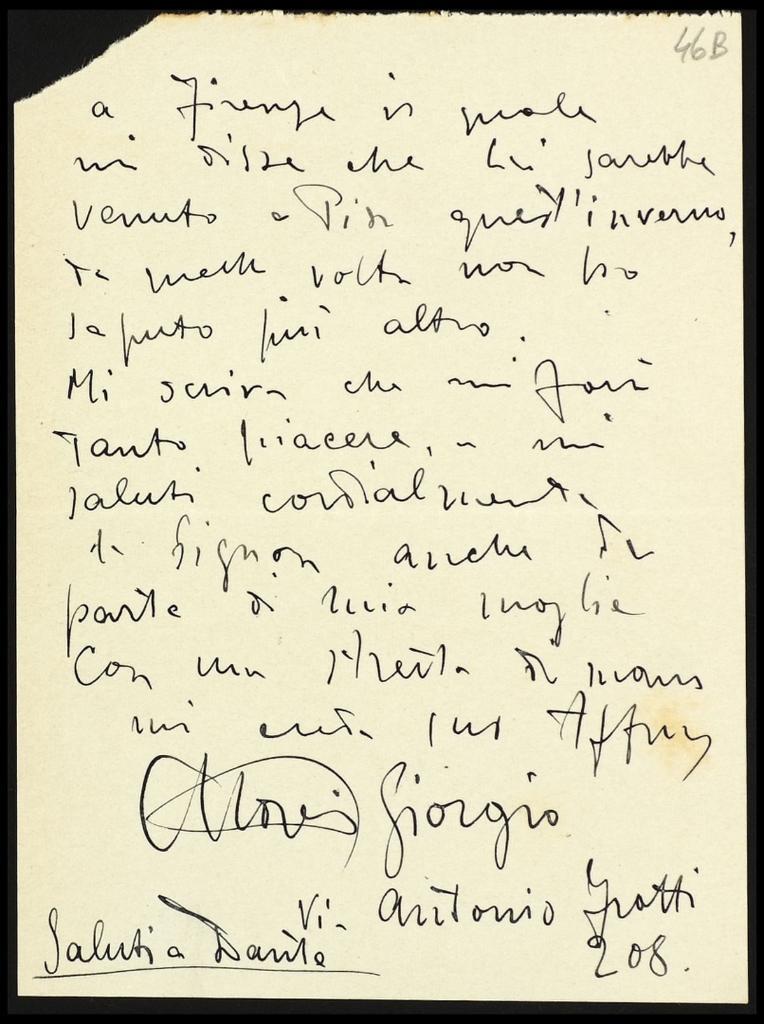 46B
a Firenze il quale
mi disse che Lei sarebbe
venuto a Pisa quest'inverno,
da quella volta non ho
saputo più altro.
Mi scriva che mi farà
tanto piacere, e mi
saluti cordialmente
la Signora anche da
parte di mia moglie
Con una stretta di mano
mi creda suo Affmo
Giorgio
Via Antonio Fratti
208.
Saluti a Dante